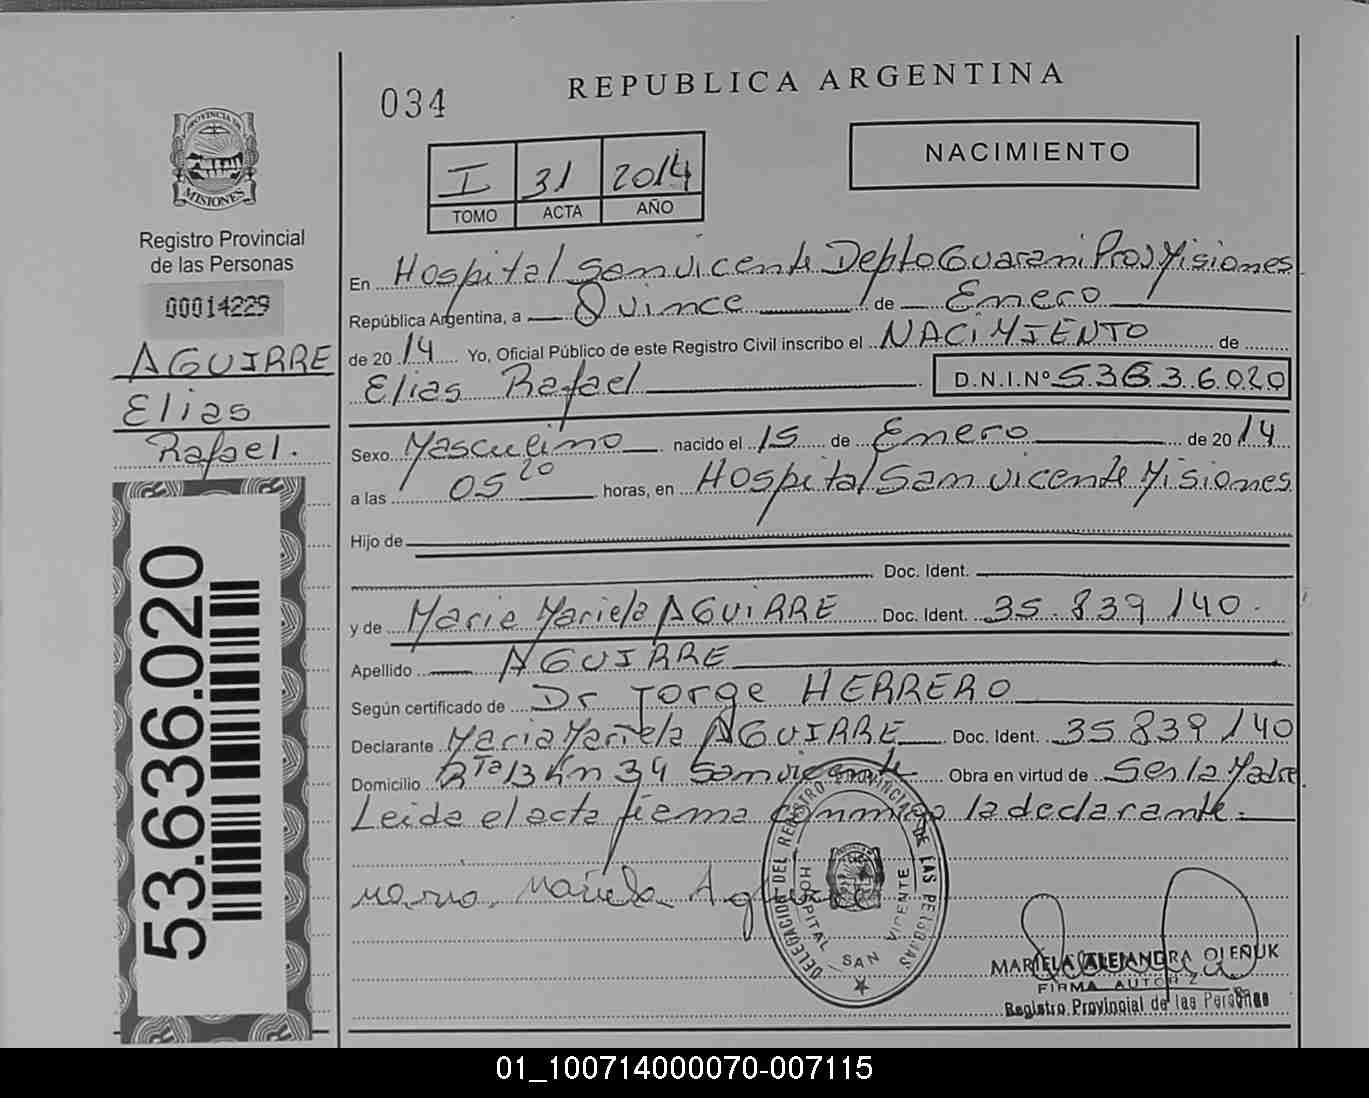 034
REPUBLICA ARGENTINA
PROVINCIA DE
MISIONES
Registro Provincial
de las Personas
00014229
AGUIRRE
Elias
Rafael.
53.636.020
I 31 2014
TOMO ACTA AÑO
NACIMIENTO
En Hospital San vicente Depto Guarani Prov Misiones
República Argentina, a Quince de Enero
de 2014 Yo, Oficial Público de este Registro Civil inscribo el NACIMIENTO de
Elias Rafael D.N.I.Nº 53636.020
Sexo Masculino nacido el 15 de Enero de 2014
a las 05 20 horas, en Hospital San vicente Misiones
Hijo de
Doc. Ident.
y de Maria Mariela AGUIRRE Doc. Ident. 35.839 140.
Apellido AGUIRRE
Según certificado de Dr Jorge HERRERO
Declarante Maria Mariela AGUIRRE Doc. Ident. 35 839 140
Domicilio Rta 13 Km 34 San vicente Obra en virtud de Ser la Madre
Leida el acta firma conmigo la declarante.
Maria Mariela Aguirre
DELEGACION DEL REGISTRO PROVINCIAL DE LAS PERSONAS
HOSPITAL SAN VICENTE
MARIELA ALEJANDRA OLENUK
FIRMA AUTORIZ
Registro Provincial de las Personas
01_100714000070-007115